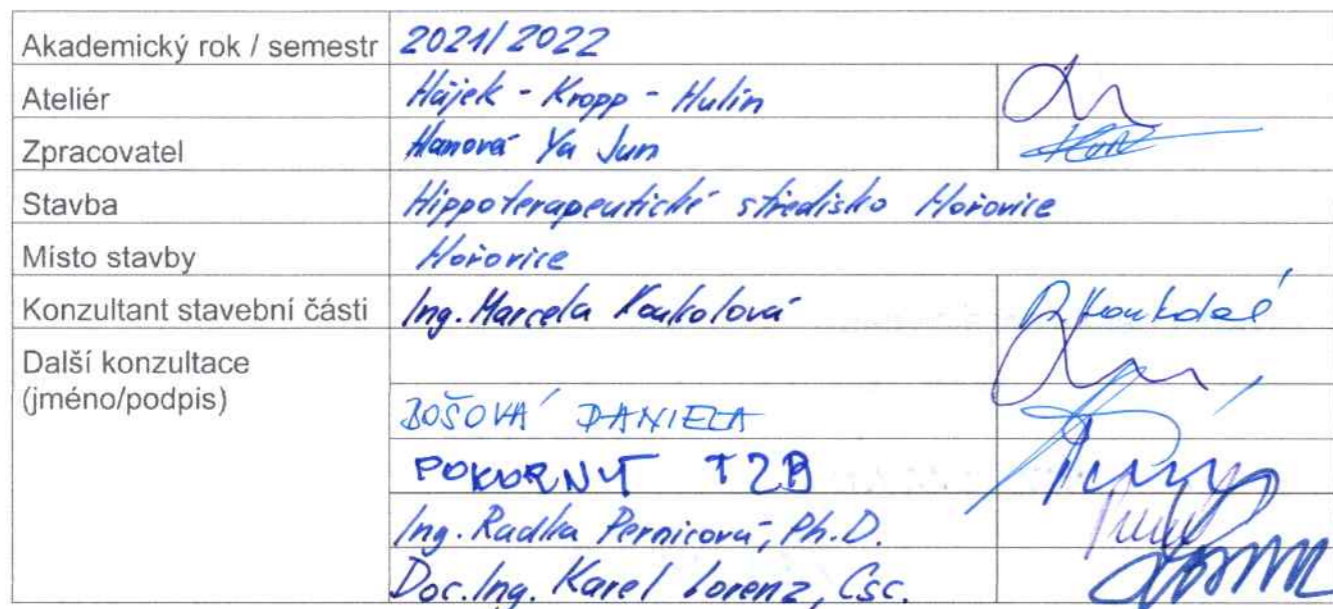 Akademický rok / semestr 2021/2022
Ateliér Hájek - Kropp - Hulín
Zpracovatel Hanová Ya Jun
Stavba Hippoterapeutické středisko Hořovice
Místo stavby Hořovice
Konzultant stavební části Ing. Marcela Koukolová
Další konzultace
(jméno/podpis)
BOŠOVÁ DANIELA
POKORNÝ TZB
Ing. Radka Pernicová, Ph.D.
Doc. Ing. Karel Lorenz, Csc.